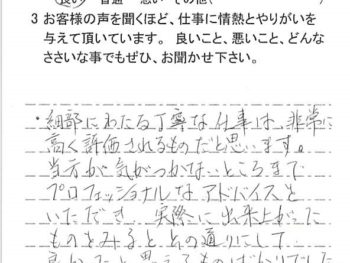 良い 普通 悪い その他(　　　)
3 お客様の声を聞くほど、仕事に情熱とやりがいを
与えて頂いています。 良いこと、悪いこと、どんな
ささいな事でもぜひ、お聞かせ下さい。
・細部にわたる丁寧な仕事は、非常に
高く評価されるものだと思います。
当方が気がつかないところまで
プロフェッショナルなアドバイスを
いただき 実際に出来上がった
ものをみるとその通りにして
良かったと思えるものばかりでした